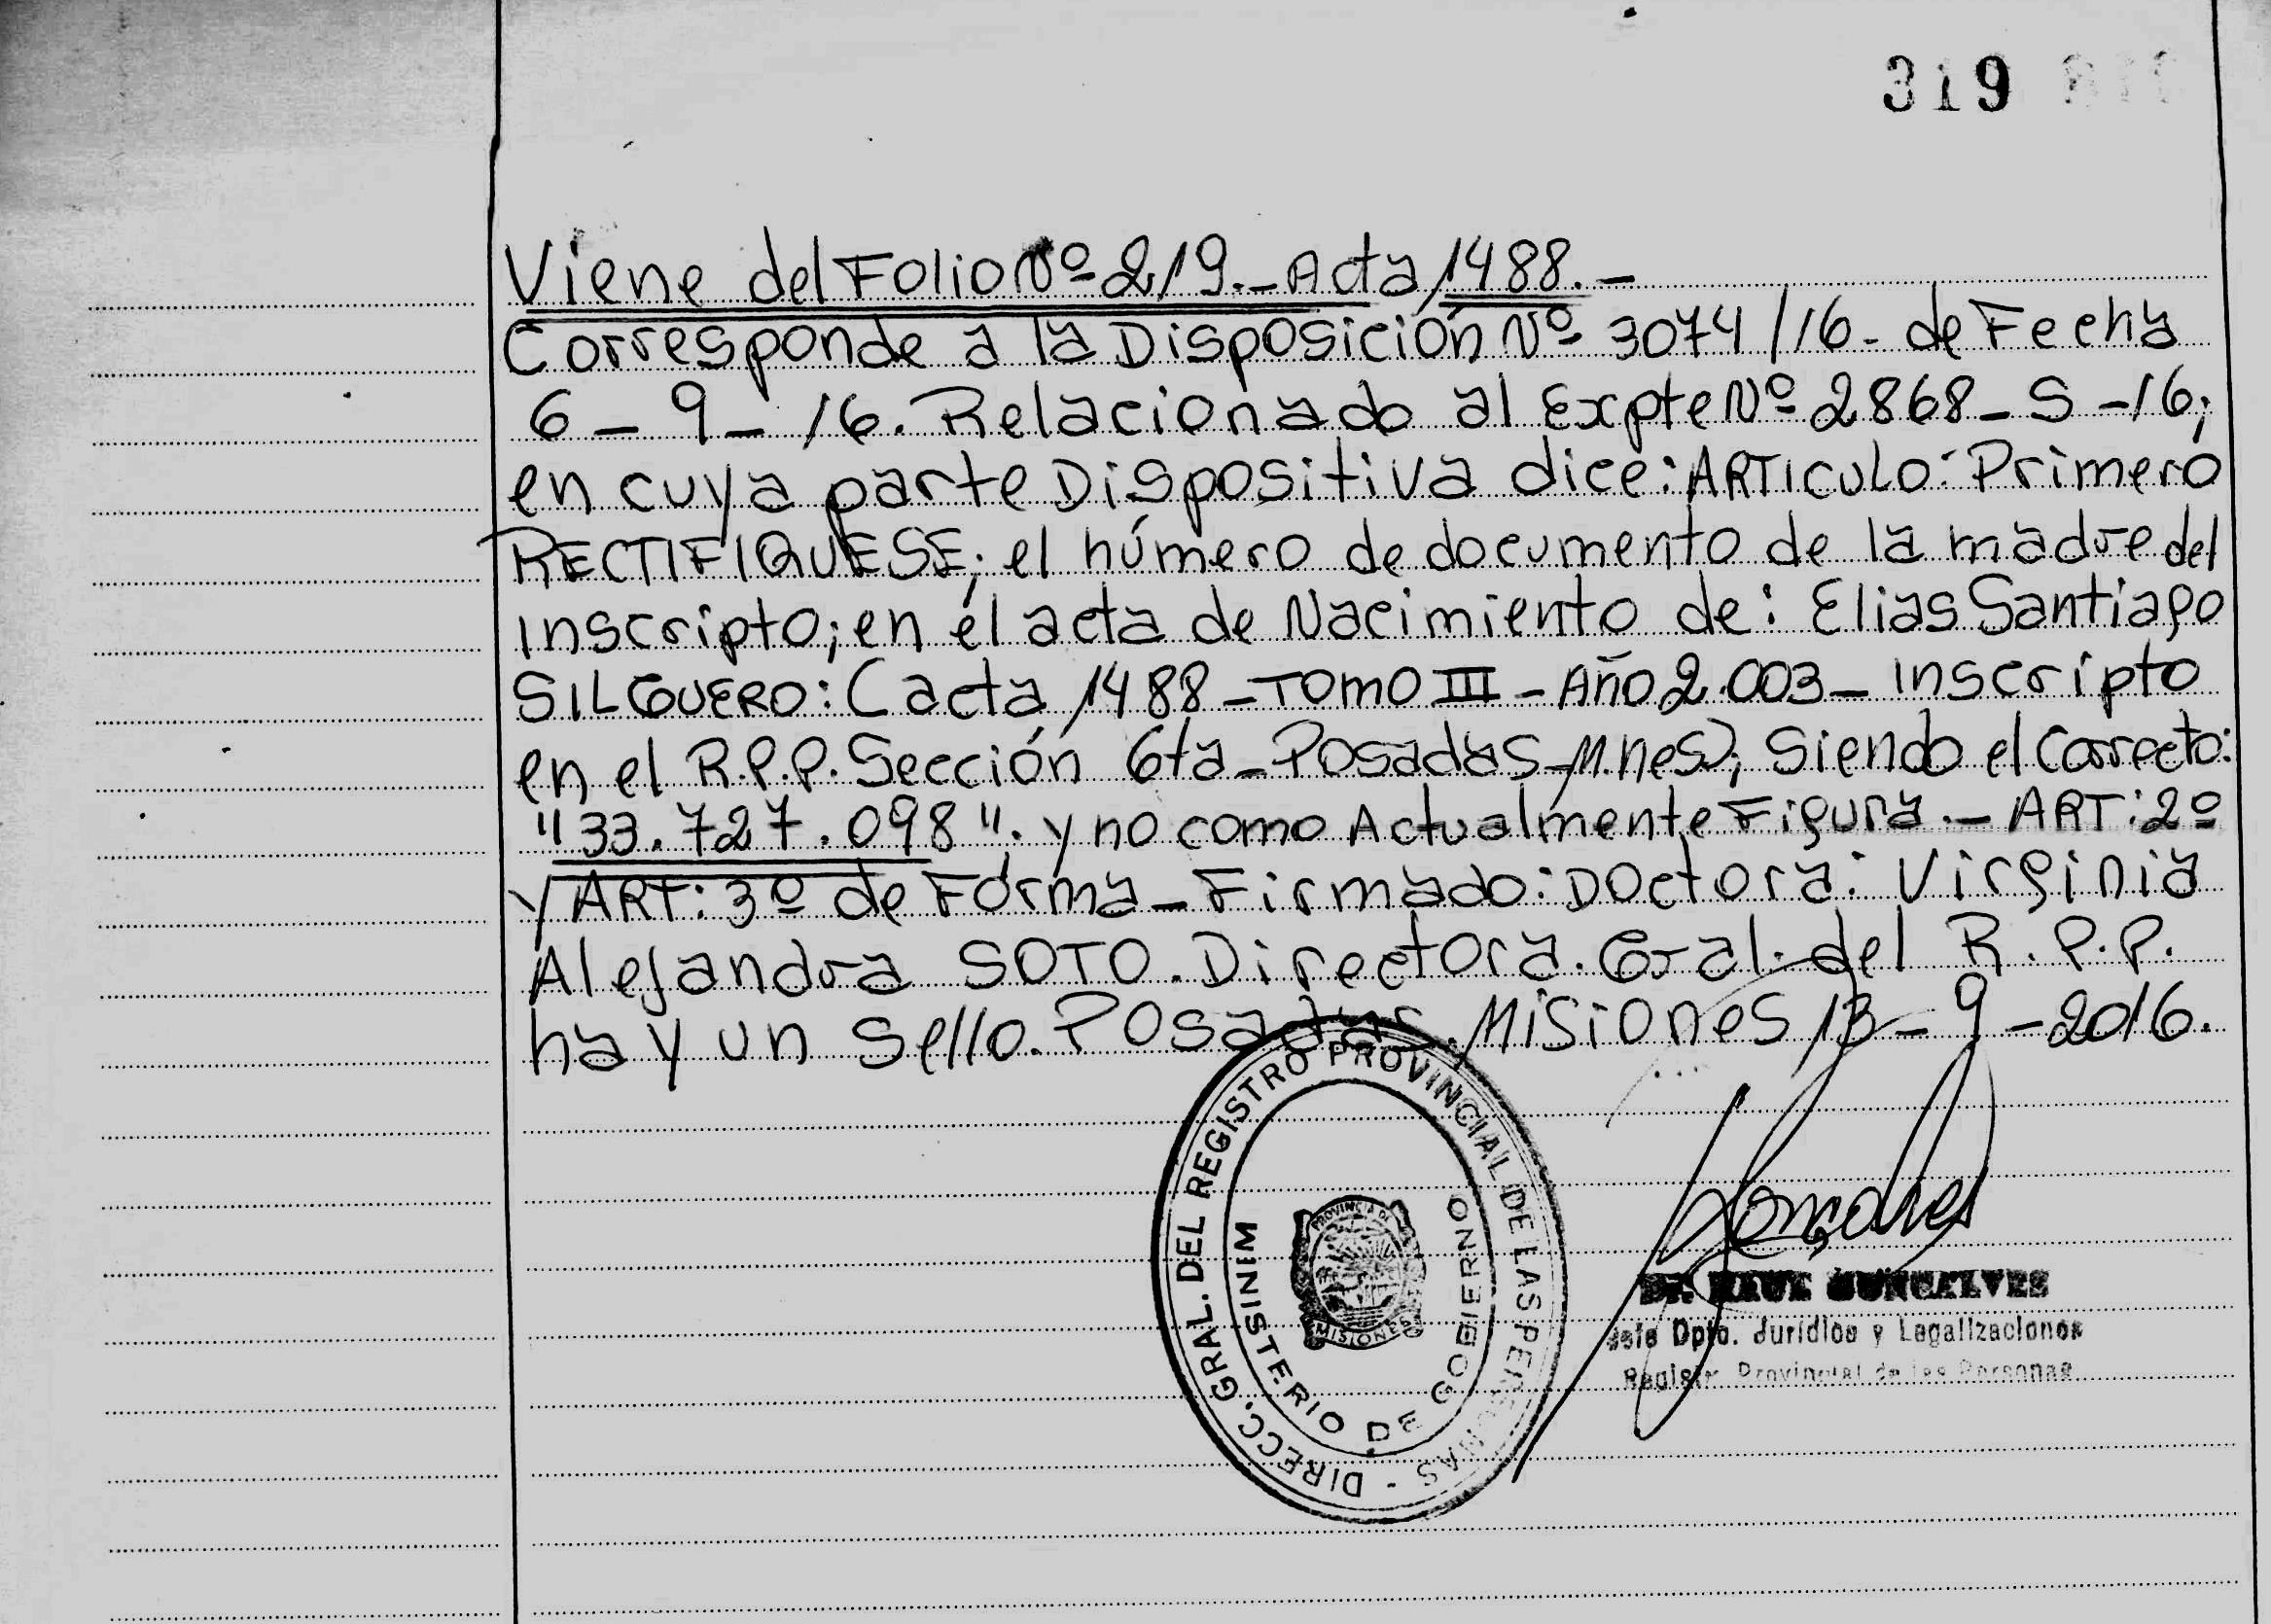 319
Viene del Folio Nº 219.- Acta 1488.-
Corresponde a la Disposición Nº 3074/16- de Fecha
6 - 9 - 16. Relacionado al Expte Nº 2868 - S - 16;
en cuya parte Dispositiva dice: ARTICULO: Primero
RECTIFIQUESE; el número de documento de la madre del
inscripto; en el acta de Nacimiento de: Elias Santiago
SILGUERO: (acta 1488 - TOMO III - Año 2.003 - inscripto
en el R.P.P. Sección 6ta - Posadas - M.nes); Siendo el Correcto:
"33.727.098". y no como Actualmente Figura.- ART: 2º
y ART: 3º de Forma - Firmado: Doctora: Virginia
Alejandra SOTO. Directora. Gral. del R.P.P.
hay un Sello. Posadas. Misiones 13 - 9 - 2016.
DIRECC. GRAL. DEL REGISTRO PROVINCIAL DE LAS PERSONAS -
MINISTERIO DE GOBIERNO
PROVINCIA DE
MISIONES
Gonçalves
Dr. RAUL GONCALVES
Jefe Dpto. Jurídico y Legalizaciones
Registro Provincial de las Personas